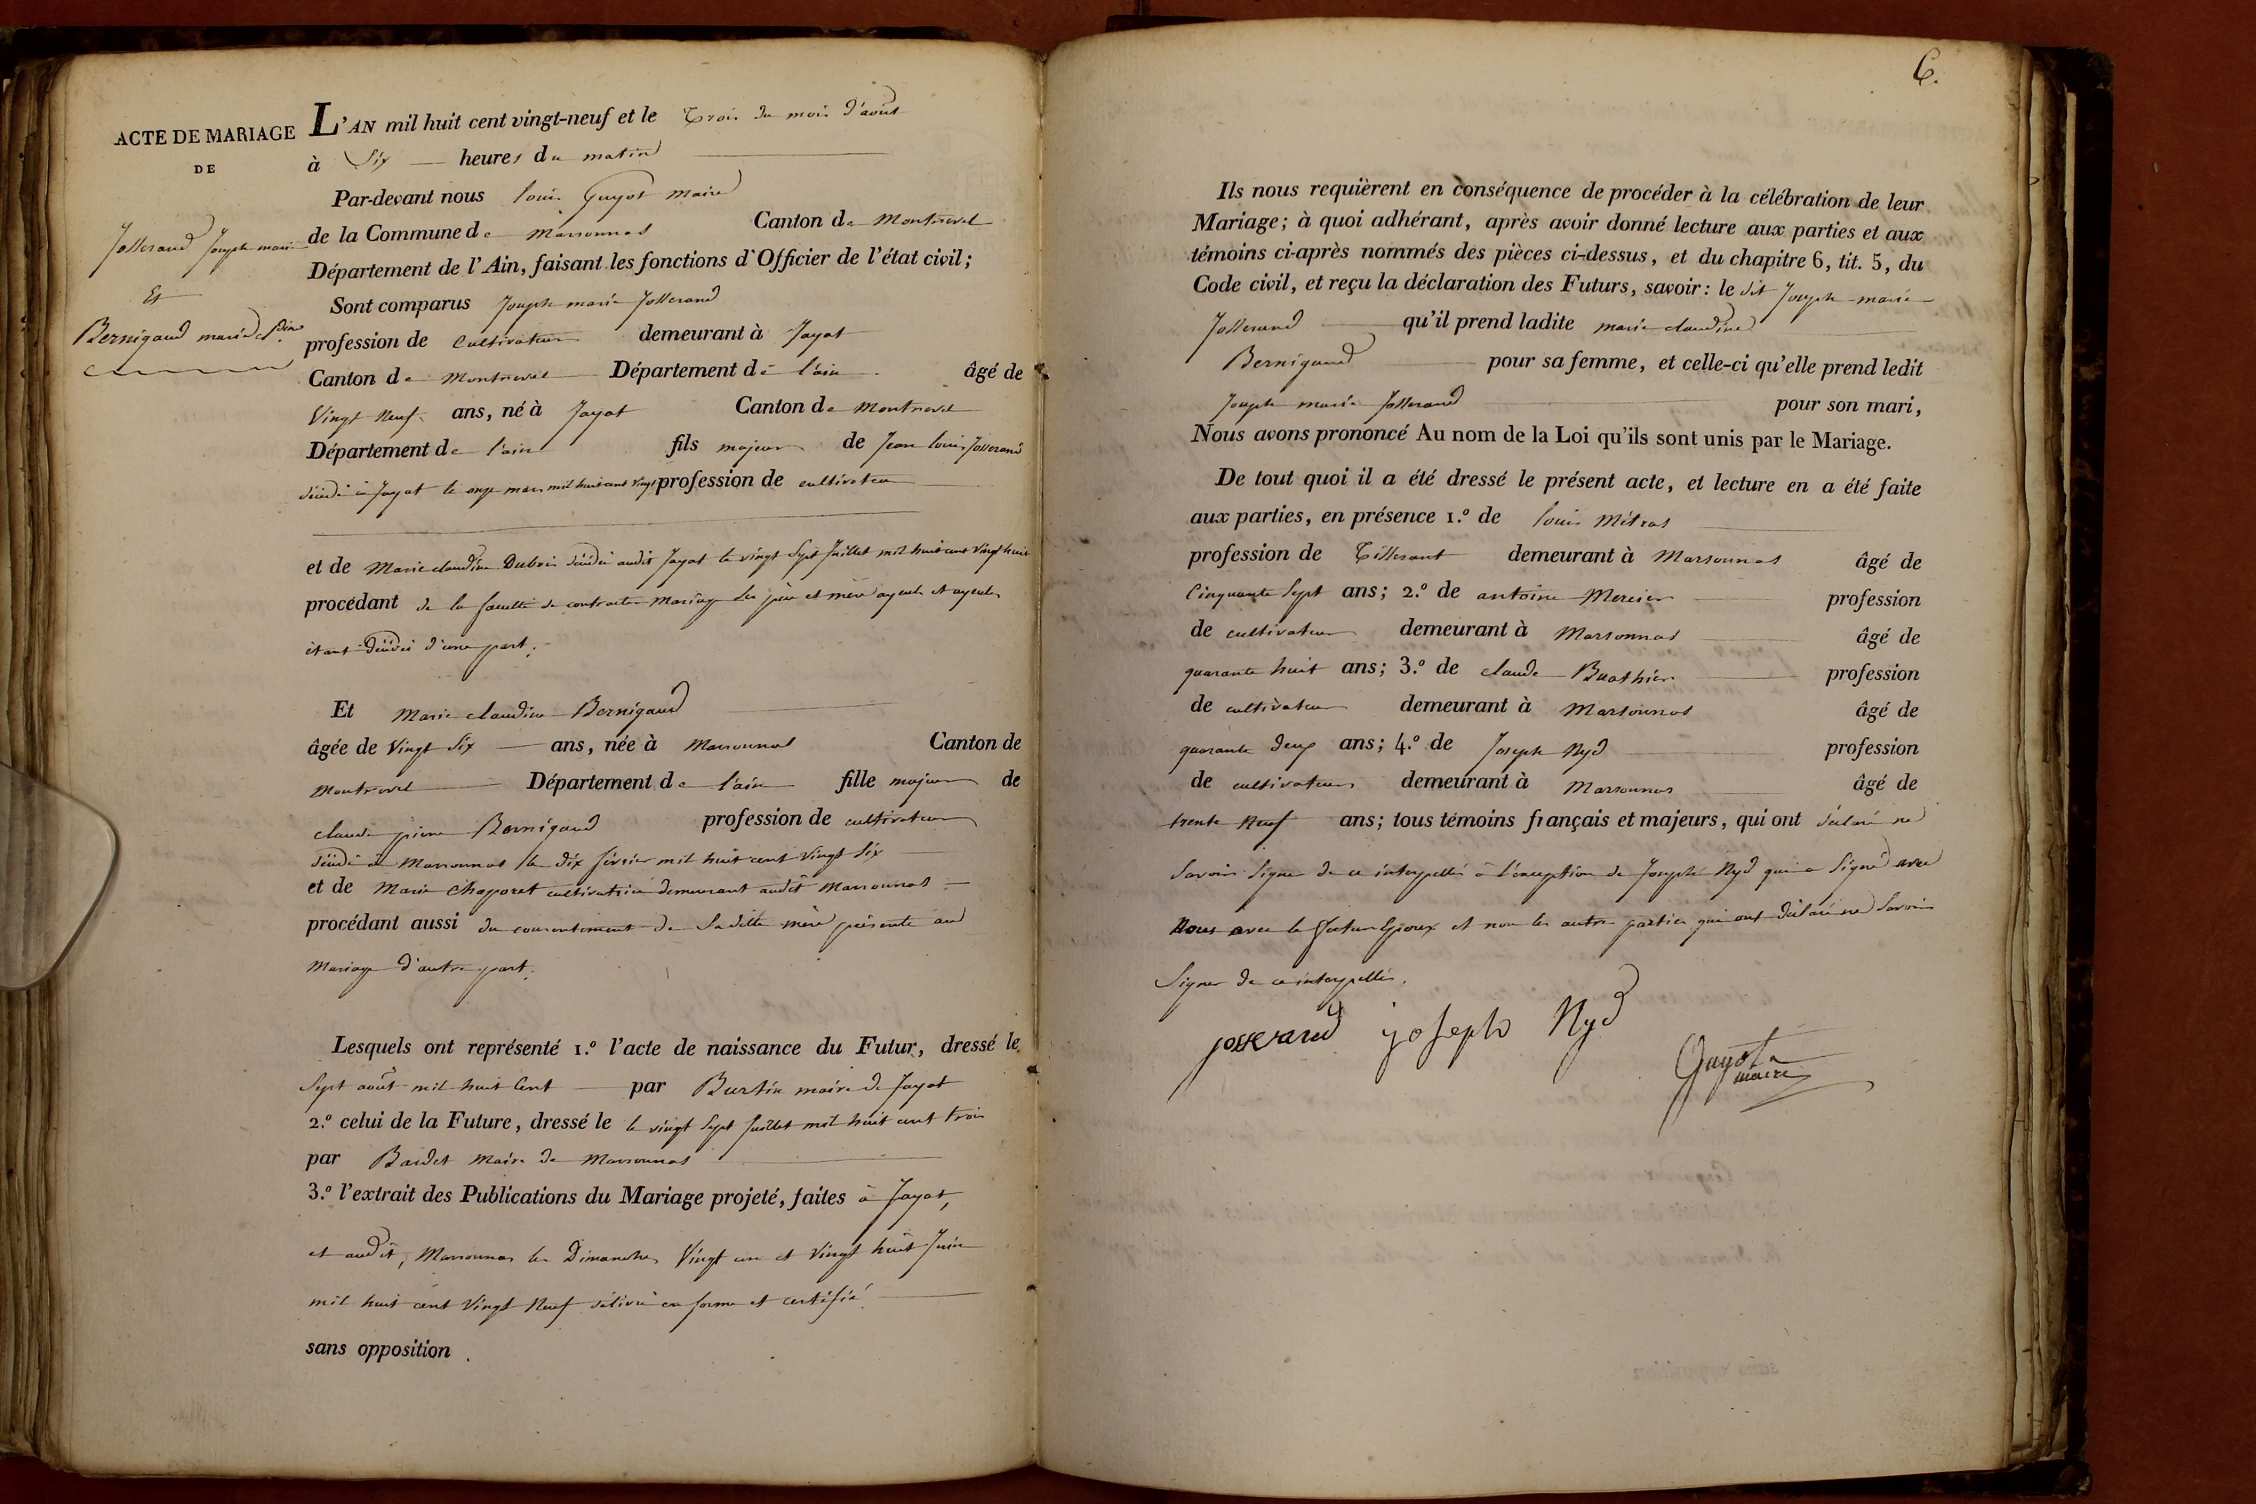 ACTE DE MARIAGE
DE
Josserand Joseph marie
Et
Bernigaud marie cl.dine
L'AN mil huit cent vingt-neuf et le Trois du mois d'août
à Six heures du matin
Par-devant nous louis Guyot maire
de la Commune de marsonnas Canton de Montrevel
Département de l'Ain, faisant les fonctions d'Officier de l'état civil;
Sont comparus Joseph marie Josserand
profession de Cultivateur demeurant à Jayat
Canton de Montrevel Département de l'ain âgé de
Vingt Neuf ans, né à Jayat Canton de Montrevel
Département de l'ain fils majeur de Jean louis Josserand
décédé à Jayat le onze mars mil huit cent vingt profession de cultivateur
et de Marie claudine Dubois décédée audit Jayat le vingt Sept Juillet mil huit cent vingt huit
procédant de la faculté de contracter Mariage Les père et mère ayeuls et ayeules
étant décédés d'une part.
Et Marie claudine Bernigaud
âgée de Vingt Six ans, née à Marsonnas Canton de
Montrevel Département de l'ain fille majeure de
claude pierre Bernigaud profession de cultivateur
décédé à Marsonnas le dix février mil huit cent vingt Six
et de Marie Chaporet cultivatrice demeurant audit Marsonnas
procédant aussi du consentement de Sa dite mère présente au
Mariage d'autre part.
Lesquels ont représenté 1.º l'acte de naissance du Futur, dressé le
Sept août mil huit Cent par Burtin maire de Jayat
2.º celui de la Future, dressé le le vingt Sept Juillet mil huit cent trois
par Baudet Maire de Marsonnas
3.º l'extrait des Publications du Mariage projeté, faites à Jayat,
et audit, Marsonnas les Dimanches Vingt un et Vingt huit Juin
mil huit cent Vingt Neuf délivré en forme et certifié
sans opposition.
6.
Ils nous requièrent en conséquence de procéder à la célébration de leur
Mariage; à quoi adhérant, après avoir donné lecture aux parties et aux
témoins ci-après nommés des pièces ci-dessus, et du chapitre 6, tit. 5, du
Code civil, et reçu la déclaration des Futurs, savoir: le dit Joseph marie
Josserand qu'il prend ladite marie claudine
Bernigaud pour sa femme, et celle-ci qu'elle prend ledit
Joseph marie Josserand pour son mari,
Nous avons prononcé Au nom de la Loi qu'ils sont unis par le Mariage.
De tout quoi il a été dressé le présent acte, et lecture en a été faite
aux parties, en présence 1.º de louis Métras
profession de Tisserant demeurant à Marsonnas âgé de
Cinquante Sept ans; 2.º de antoine Mercier profession
de cultivateur demeurant à Marsonnas âgé de
quarante huit ans; 3.º de claude Buathier profession
de cultivateur demeurant à Marsonnas âgé de
quarante deux ans; 4.º de Joseph Nyd profession
de cultivateur demeurant à Marsonnas âgé de
trente Neuf ans; tous témoins français et majeurs, qui ont déclaré ne
Savoir Signer de ce interpellés à l'exception de Joseph Nyd qui a Signé avec
Nous avec le futur Epoux et non les autres parties qui ont déclaré ne Savoir
Signer de ce interpellés.
josserand joseph Nyd
Guyot
maire